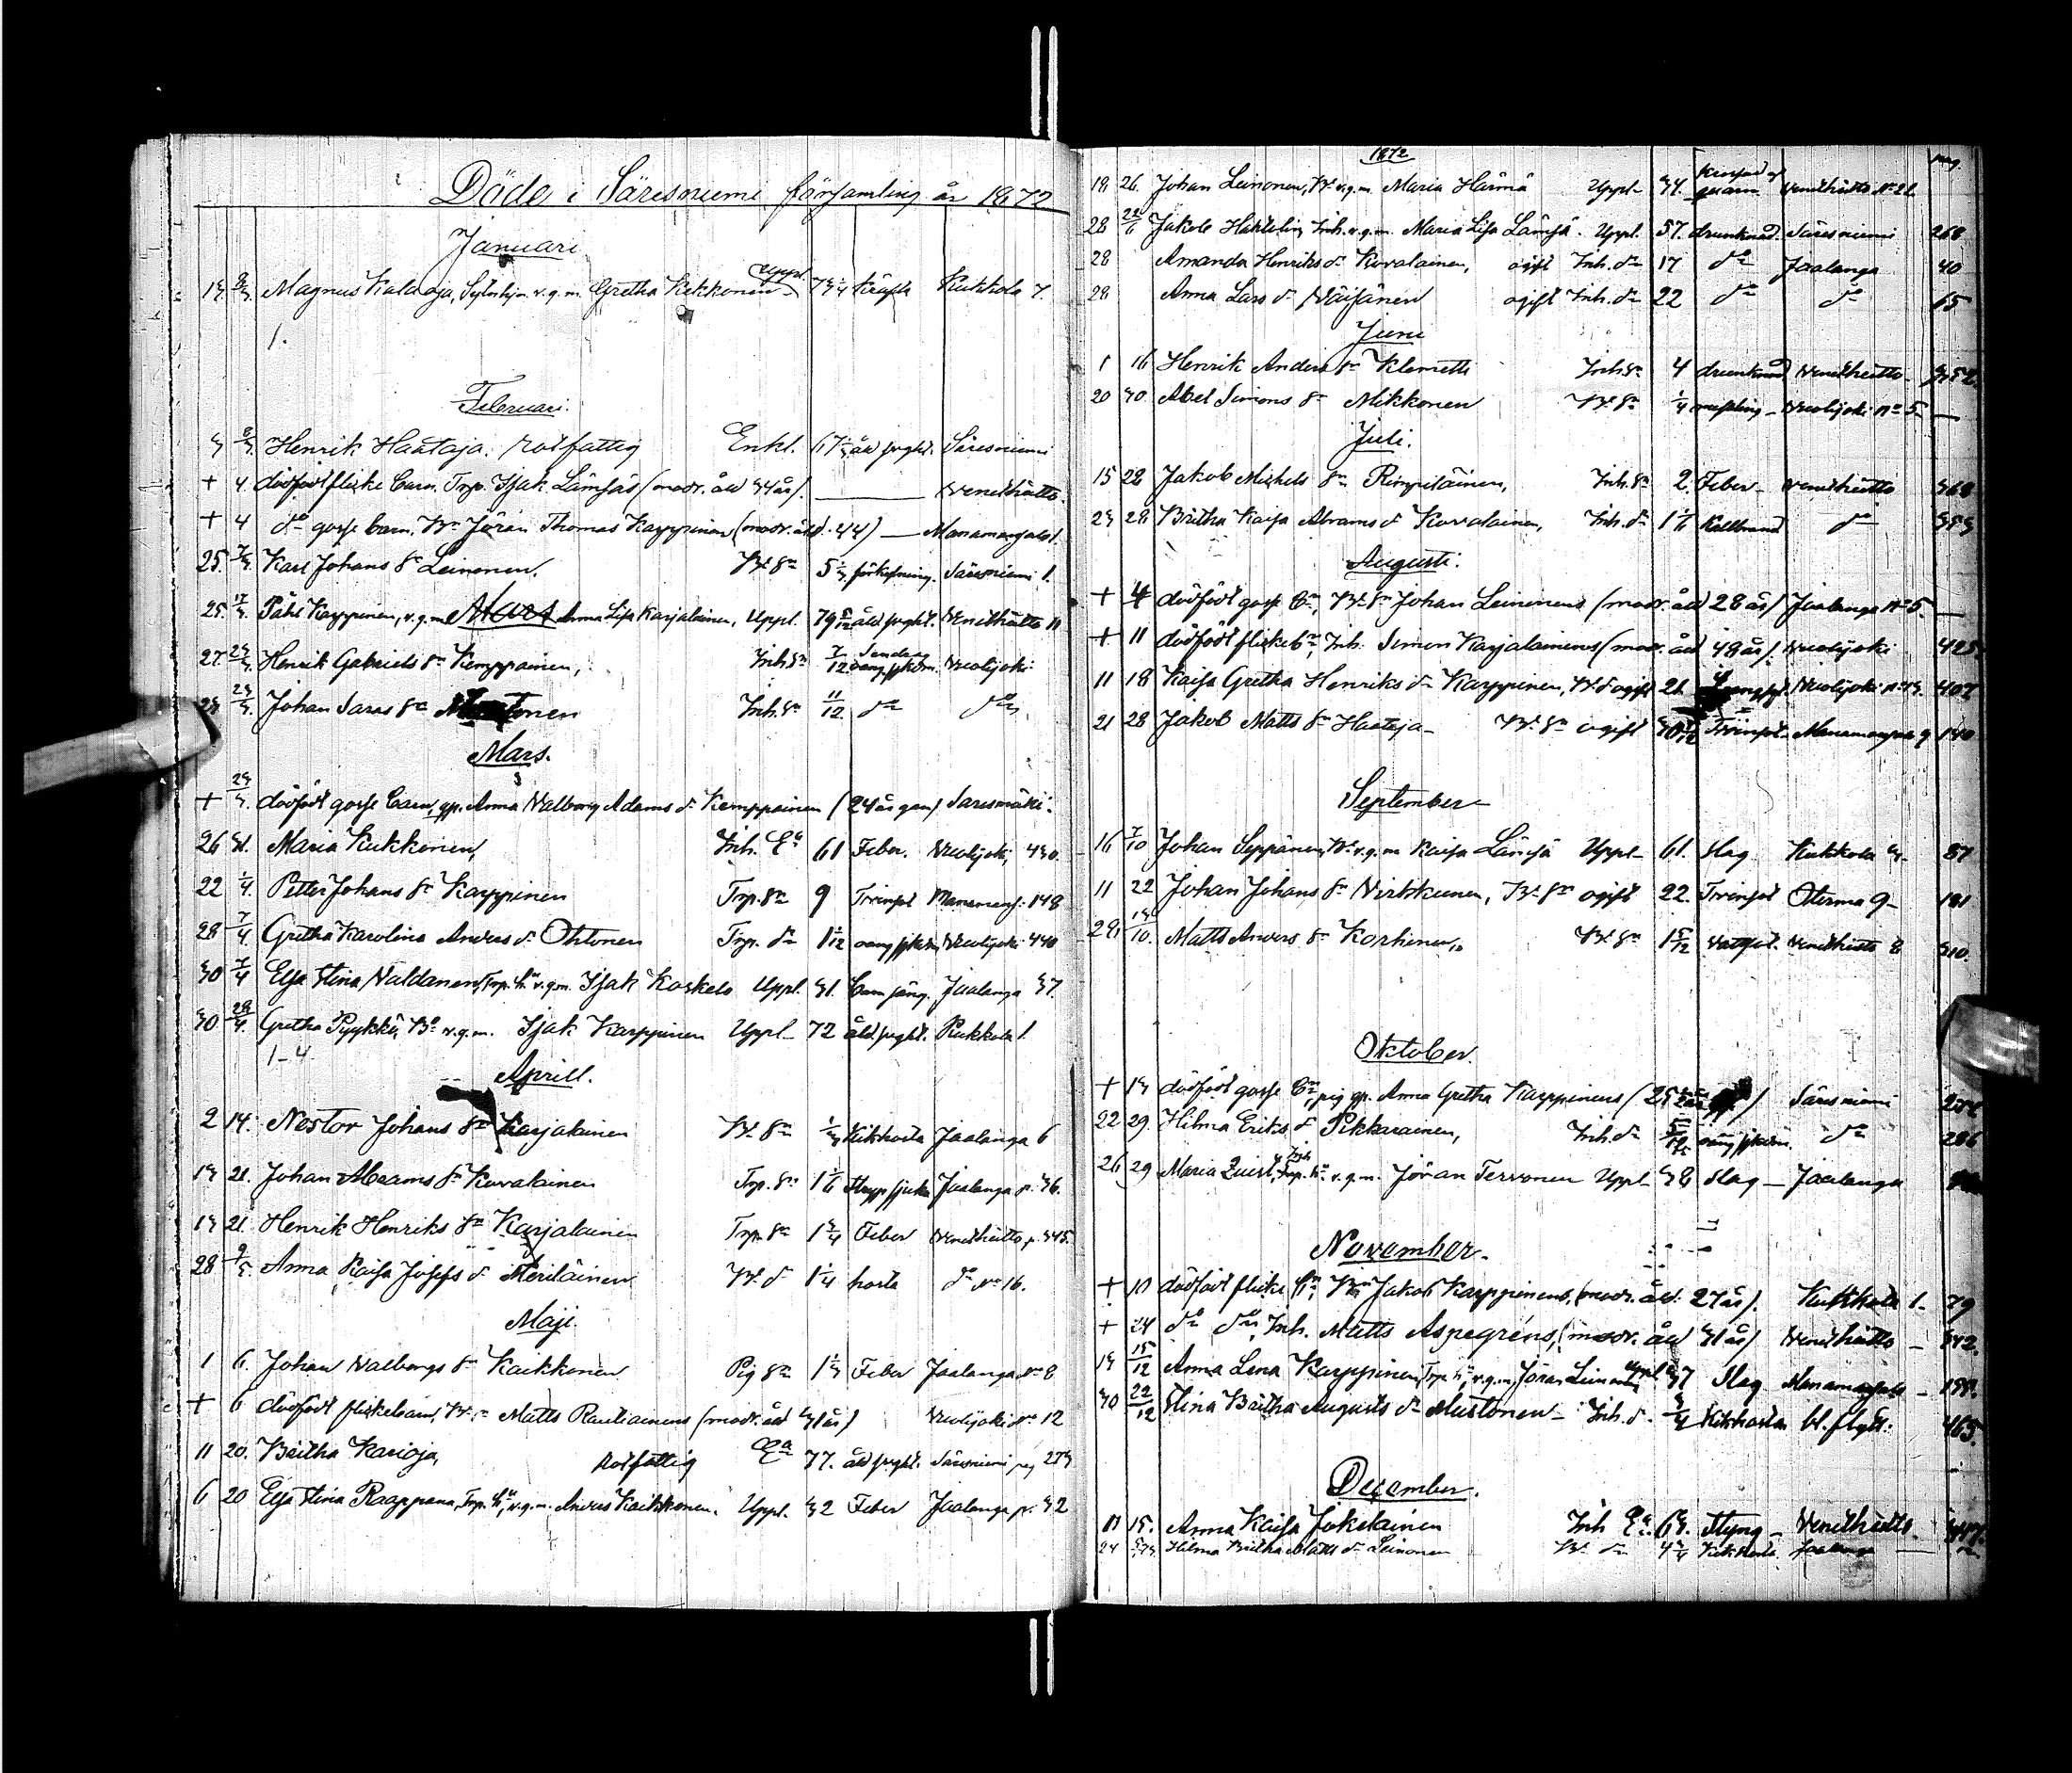 Döde i Säresniemi församling år 1872
Januari
13. Magnus Kaldoja, v.g.m. Gretha Kekkonen Uppl. 73 1/4 Kräfta Kukkola 7.
1.
Februari.
3 Henrik Haataja. rotfattig Enkl. 67 åld.svght. Säresniemi
+ 4. dödfödt flicke barn, Trp. Isak Lämsäs (modr. åld 34 år). — Venetheitto.
+ 4 do gosse barn, Jöran Thomas Karppinen (modr. åld. 44) — Manamansalo 1.
25. Karl Johans sn Leinonen. Bd. sn 5 1/3 förkylning. Säresniemi 1.
25. Påhl Karppinen, v.g.m. Anna Lisa Karjalainen, Uppl. 79 5/12 åld.svght. Venetheitto 11
27. Henrik Gabriels sn Kemppainen, Inh. sn 7/12 Vuolijoki
Johan sn Inh. sn 11/12 do do
Mars.
+ dödfödt gosse barn, qp. Anna Valborg Adams dr Kemppainen (24 år gam) Säresmäki.
26 31. Maria Kukkonen, Inh. Ea 61 Feber. Vuolijoki, 430.
22 1/4. Petter Johans sn Karppinen Trp. sn 9 Tvinsot Manamans. 148
28 7/4. Gretha Karolina Anders dr Ohtonen Trp. dr 1 1/12 Vuolijoki 440
30 7/4 Elsa Stina Valdanen, Trp. h. v.g.m. Isak Koskelo Uppl. 31. Barnsäng. Jaalanga 37.
30 28/4. Gretha Pyykkö, v.g.m. Isak Karppinen Uppl. 72 åld.svght. Kukkola 1.
1-4.
Aprill.
2 14. Nestor Johans sn Karjalainen Bd. sn 1/3 Kikhosta Jaalanga 6
13 21. Johan Abrams sn Kovalainen Trp. sn 1 1/6 Strypsjuka Jaalanga p. 36.
13 21. Henrik Henriks sn Karjalainen Trp. sn 1 3/4 Feber Venetheitto p. 345.
28 9/5. Anna Kaisa Josefs dr Meriläinen Bd. dr 1 1/4 hosta do No 16.
Maji.
1 6. Johan Valborgs sn Kaikkonen Pig sn 1 1/3 Feber Jaalanga No 8
+ 6 dödfödt flickebarn, Matts Rautiainens (modr. åld 31 år) Vuolijoki No 12
11 20. Britha Karioja, Rotfattig Ea 77. åld.svght. Säresniemi pag 273
6 20 Elsa Stina Raappana, Trp. h. v.g.m. Anders Kaikkonen. Uppl. 32 Feber Jaalanga p. 32
1872 pag.
18 26. Johan Leinonen, v.g.m. Maria Härmä Uppl. 34. Venetheitto No 22
28 22/6 Jakob Inh. v.g.m. Maria Lisa Lämsä. Uppl. 57. drunknad. Säresniemi 268
28 Amanda Henriks dr Kovalainen, ogift Inh. dr 17 do Jaalanga 40
28 Anna Lars dr Väisänen ogift Inh. dr 22 do do 65
Juni
1 16 Henrik Anders sn Klemetti Inh. sn 4 drunknad Venetheitto 352.
20 30. Abel Simons sn Mikkonen Bd. sn 1/4 messling Vuolijoki No 5 —
Juli.
15 28 Jakob Mickels sn Rimpiläinen, Inh. sn 2. Feber Venetheitto 368
23 28 Britha Kaisa Abrams dr Kovalainen, Inh. dr 1 1/6 Kallbrand do 353
Augusti.
+ 4 dödfödt gosse bn, Johan Leinonens (modr. åld 28 år) Jaalanga No 5 —
+ 11 dödfödt flickebn, Inh. Simon Karjalainens (modr. åld 48 år). Vuolijoki 425.
11 18 Kaisa Gretha Henriks dr Karppinen, Bd. d ogift 21 Vuolijoki 407
21 28 Jakob Matts sn Haataja Bd. sn ogift Tvinsot Manamansalo 9 140
September
16 7/10 Johan Seppänen, v.g.m. Kaisa Lämsä Uppl. 61. Slag Kukkola 3 87
11 22 Johan Johans sn Virkkunen, Bd. sn ogift 22. Tvinsot Oterma 9 181
28 13/10. Matts Anders sn Korhonen, Bd. sn 1 5/12 Vattsot. Venetheitto 8 310.
Oktober.
+ 13 dödfödt gosse bn, pig. qp. Anna Gretha Karppinens (25 ) Säresniemi
22 29. Hilma Eriks dr Pikkarainen, Inh. dr do 286
26 29 Maria v.g.m. Jöran Tervonen Uppl. 38 Slag — Jaalanga
November.
+ 10 dödfödt flicke bn, Jakob Karppinens, (modr. åld. 27 år). Kukkola 1. 79
+ 24 do do, Inh. Matts Aspegréns, (modr. åld 31 år) Venetheitto 342.
13 15/12 Anna Lena Karppinen, Trp. h. v.g.m. Jöran Leinonen Uppl. 37 Slag Manamansalo
30 22/12 Stina Britha Augusts dr Mustonen Inh. d. 3/4 Kikhosta bl. flygt. 465.
December.
11 15. Anna Kaisa Jokelainen Inh Ea. 63. Styng Venetheitto
24 Hilma Britha Matts dr Leinonen Bd. dr 4 3/4 Kikhosta Jaalanga